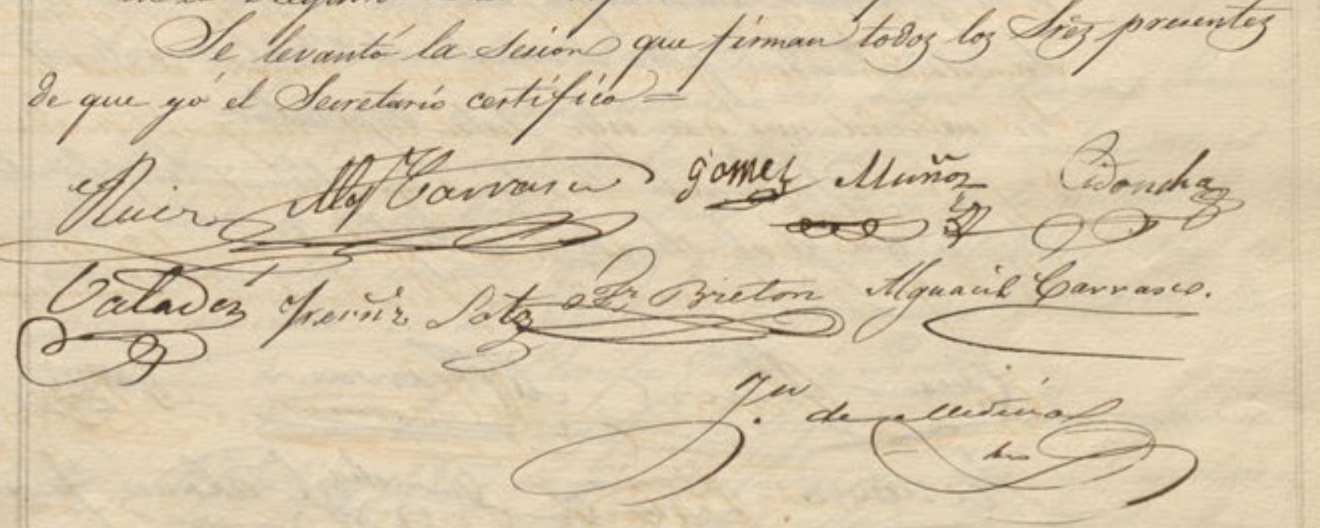 Se levantó la sesion que firman todos los Sres presentes
de que yó el Secretario certifico =
Ruiz Carrasco Gomez Muñoz Cidoncha
Valadéz Treviñ Soto Fr Breton Alguacil Carrasco.
Jn de Medina